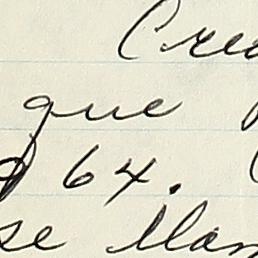 Crea
que
64.
se llam